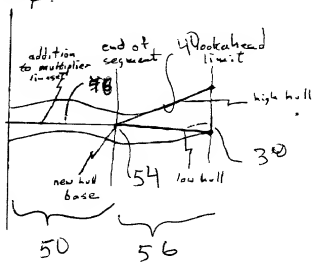 addition
to multiplier
linaset
end of
segment
40
lookahead
limit
high hull
30
low hull
54
new hull
base
50
56